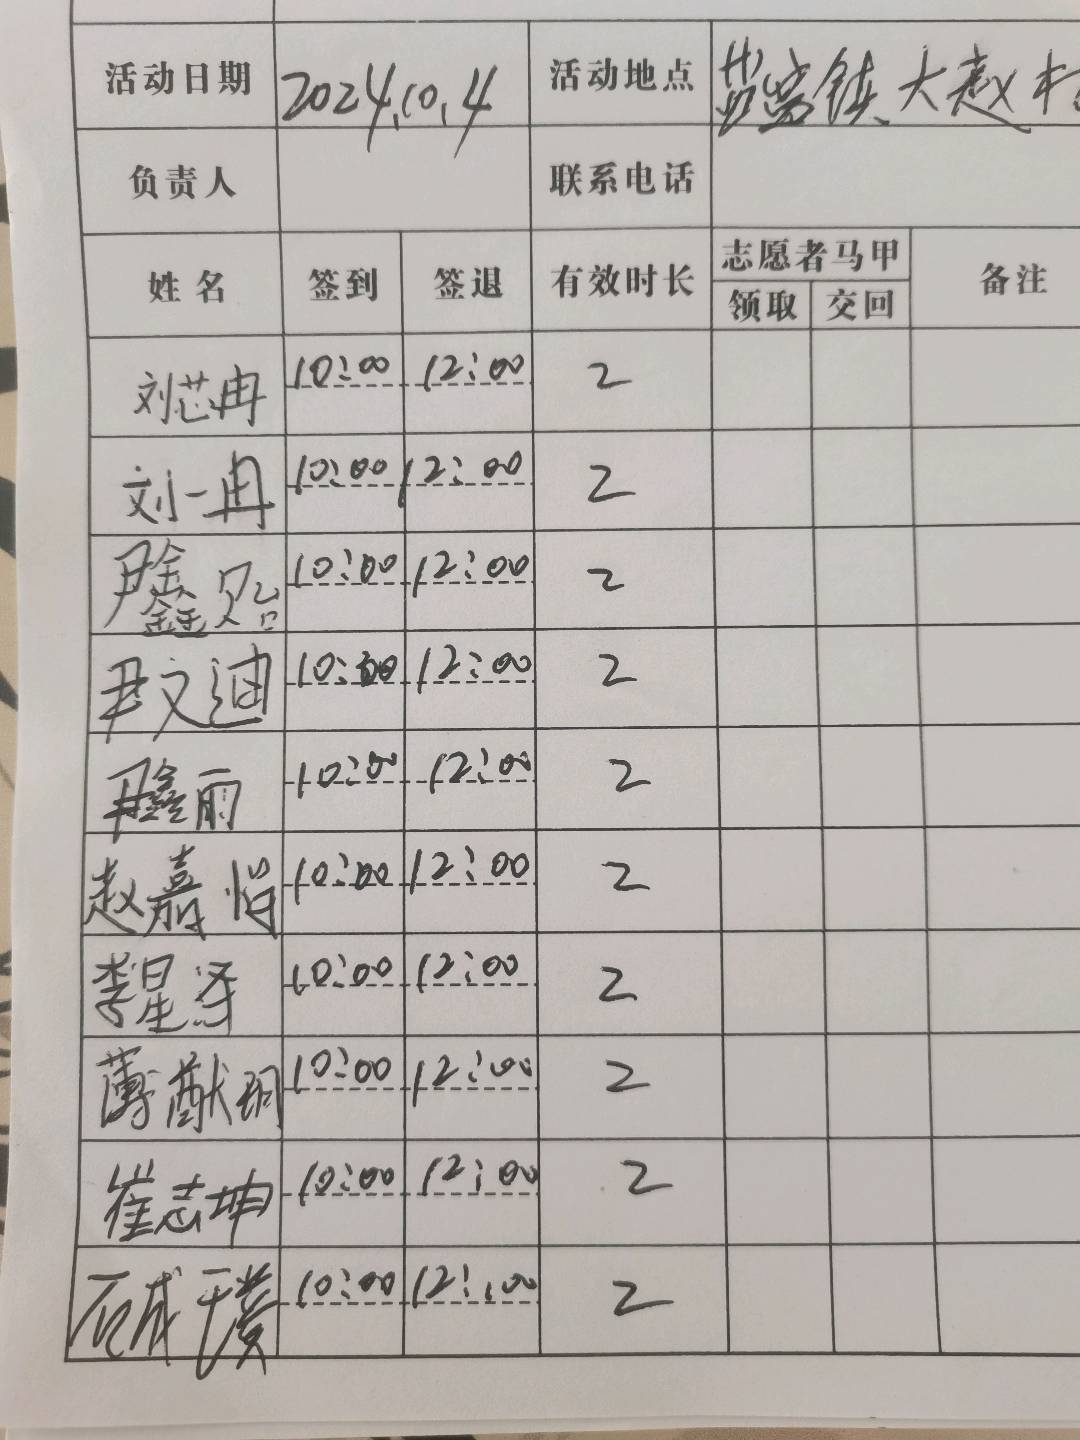 活动日期 2024.10.4 活动地点 镇大赵村
负责人 联系电话
姓名 签到 签退 有效时长 志愿者马甲 备注
领取 交回
刘芯冉 10:00 12:00 2
刘一冉 10:00 12:00 2
尹鑫贻 10:00 12:00 2
尹文迪 10:00 12:00 2
尹鑫雨 10:00 12:00 2
赵嘉怡 10:00 12:00 2
李星泽 10:00 12:00 2
薄猷玥 10:00 12:00 2
崔志坤 10:00 12:00 2
10:00 12:00 2